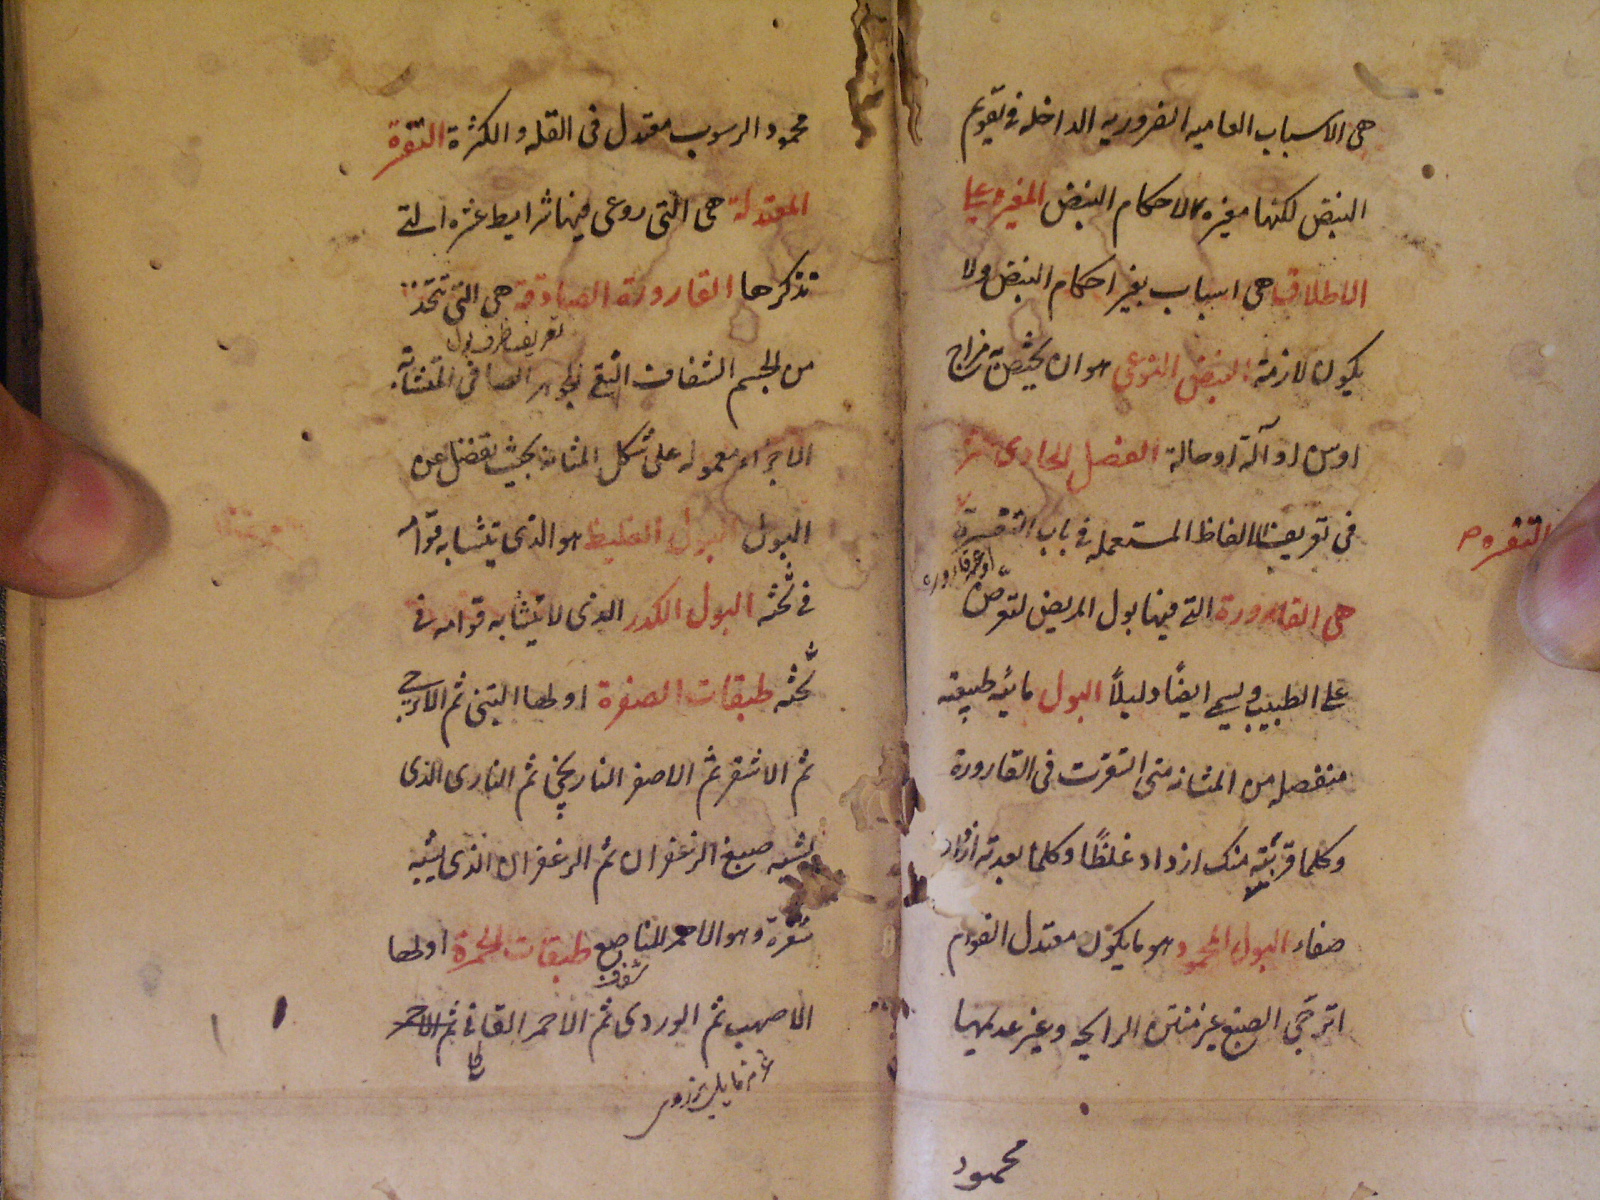 هى الاسباب العاميه الضروريه الداخله فى تقويم
النبض لكنها مغيره لاحكام النبض المغيره على
الاطلاق هى اسباب يغير احكام النبض ولا
يكون لازمة النبض النوعى هو ان يختص به مزاج
اوسن او آلة او حالة الفصل الحادى عشر
فى تعريف الفاظ المستعمله فى باب التفسرة
التفسره
هى القارورة التى فيها بول المريض لتعرض
على الطبيب ويسمى ايضًا دليلاً البول مائيه طبيعته
منفصله من المثانه متى استقرت فى القارورة
وكلما قربته منك ازداد غلظًا وكلما بعدته ازداد
صفاء البول المحمود هو ما يكون معتدل القوام
اترجى الصبغ غير منتن الرايحه وغير عديمها
محمود
محمود الرسوب معتدل فى القله والكثرة التفسرة
المعتدلة هى التى روعى فيها شرايط عشره التى
نذكرها القارورة الصادقة هى التى تتخذ
من الجسم الشفاف النقى الجوهر الصافى المتشابه
الاجزاء معموله على شكل المثانه بحيث تفضل عن
البول البول الغليظ هو الذى يتشابه قوامه
فى ثخنه البول الكدر الذى لا يتشابه قوامه فى
ثخنه طبقات الصفرة اولها التبنى ثم الاترجى
ثم الاشقر ثم الاصفر النارنجى ثم النارى الذى
يشبه صبغ الزعفران ثم الزعفران الذى يشبه
شقرة وهو الاحمر الناصع طبقات الحمرة اولها
الاصهب ثم الوردى ثم الاحمر القانى ثم الاحمر